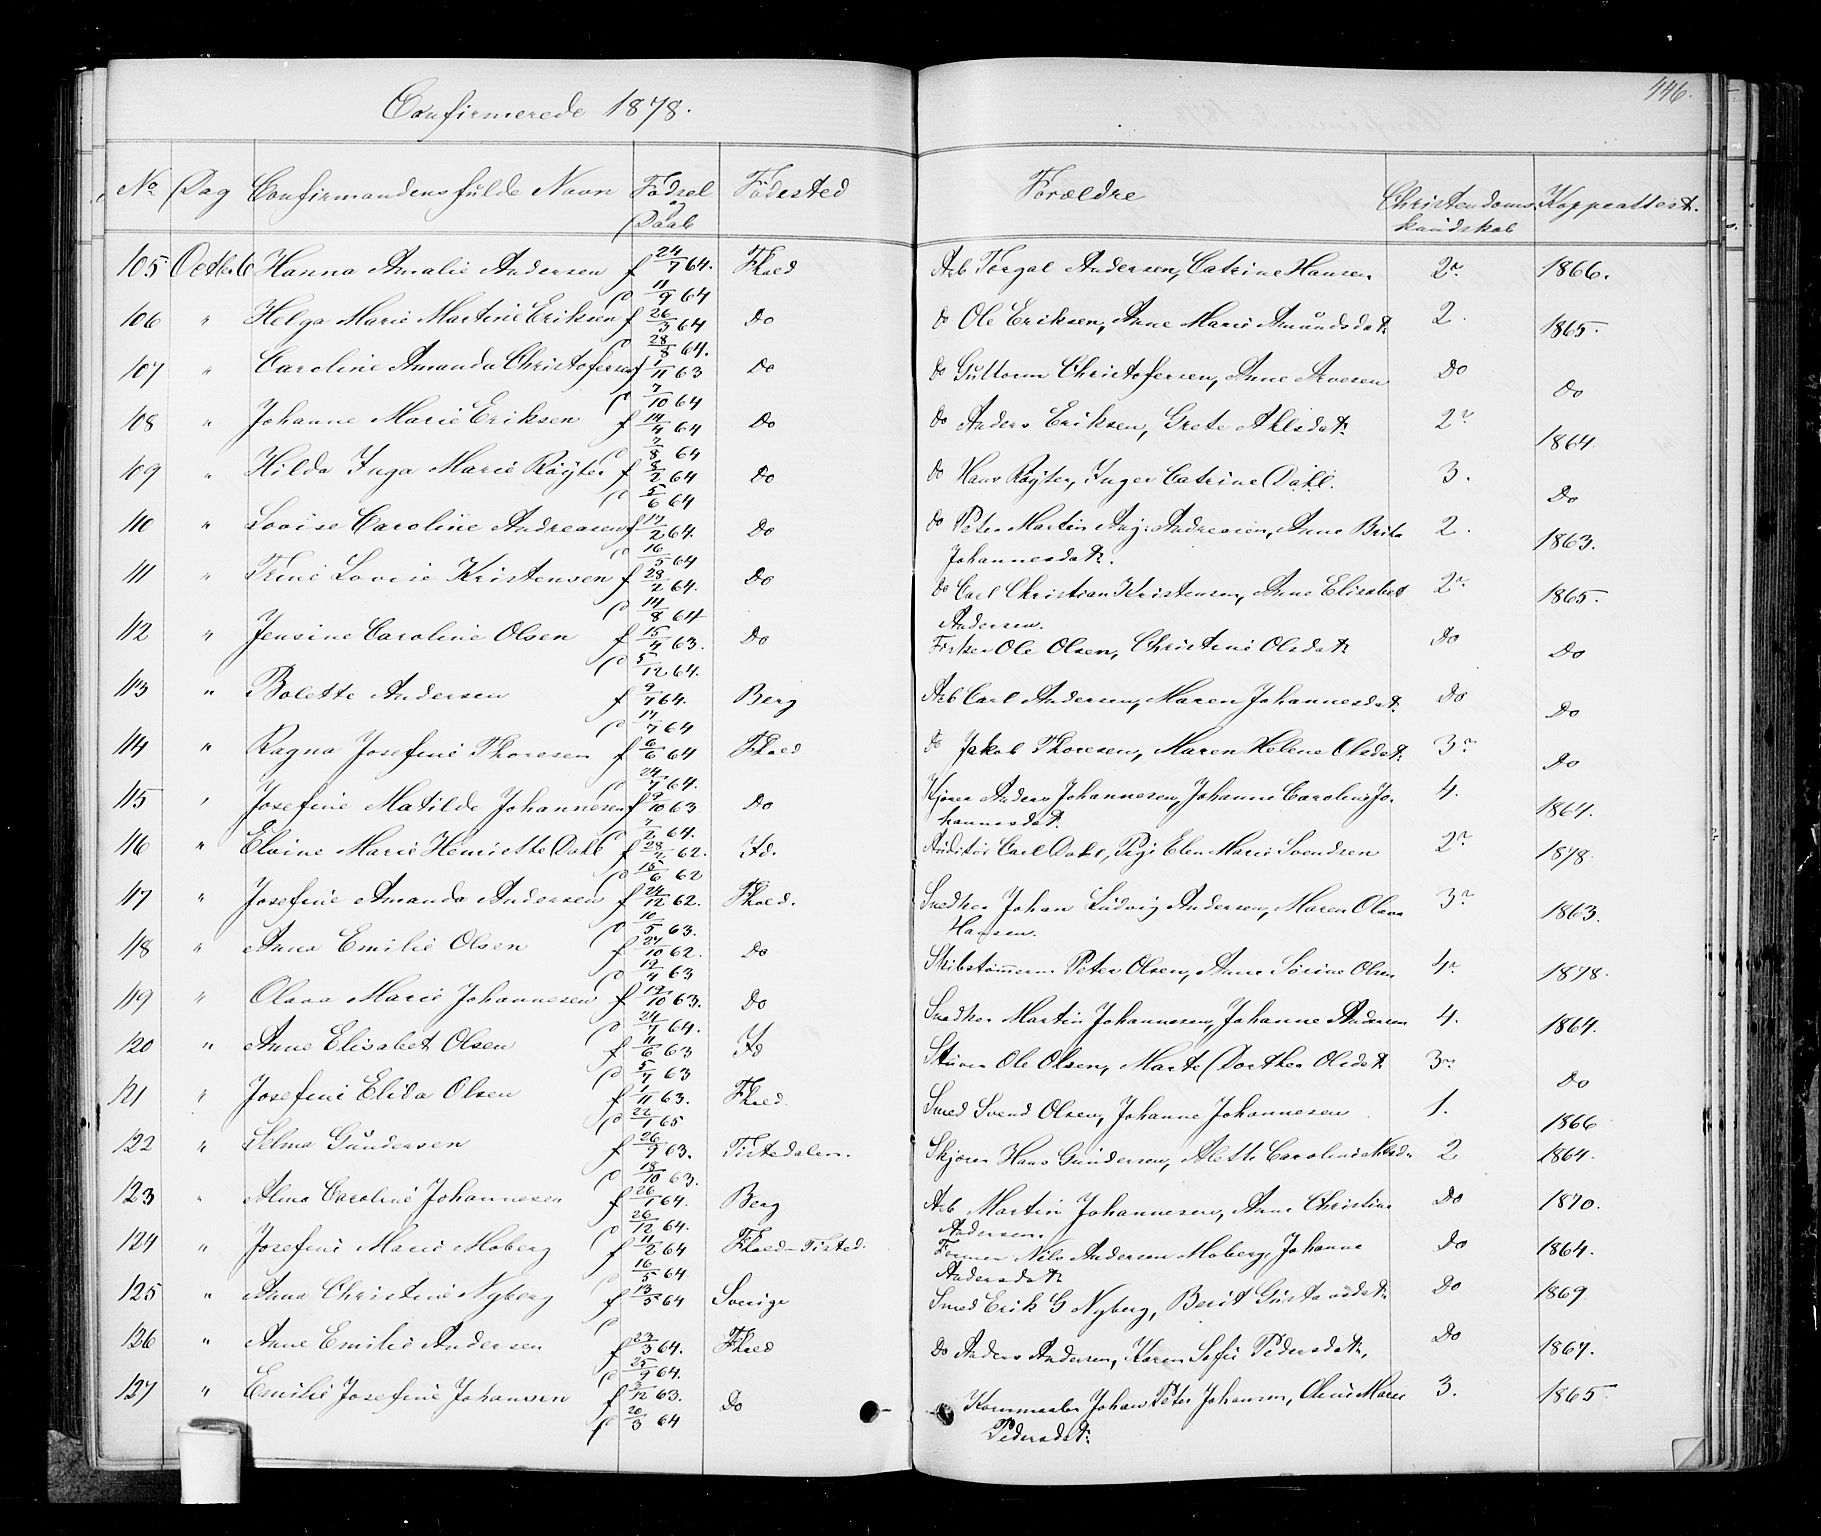 446.
Confirmerede 1878.
No Dag Confirmandens fulde Navn Fødsel og Daab Fødested Forældre Christendoms kundskab Koppeattest.
105. Octbr. 6 Hanna Amalie Andersen f 24/7 64. D 11/9 64 Fhald Arb Torgal Andersen, Catrine Hansen 2r 1866.
106 " Helga Marie Martine Eriksen f 26/3 64 D 28/8 64. Do Do Ole Eriksen, Anne Marie Amundsdatr. 2. 1865.
107 " Caroline Amanda Christofersen f 1/11 63 D 7/10 64 Do Do Guttorm Christofersen, Anne Arvesen Do Do
108 " Johanne Marie Eriksen f 14/4 64 D 7/8 64 Do Do Anders Eriksen, Grete Aklsdatr. 2r 1864
109 " Hilda Inga Marie Røyter f 8/2 64 D 5/6 64 Do Do Hans Røyter, Inger Catrine Dahl. 3. Do
110 " Lovise Caroline Andreasen f 17/2 64. D 16/5 64 Do Do Peter Martin Aug. Andreasen, Anne Brita 2. 1863.
Johannesdatr.
111 " Trine Lovise Kristensen f 28/2 64. D 14/8 64 Do Do Carl Christian Kristensen, Anne Elisabeth 2r 1865.
Andersen.
112 " Jensine Caroline Olsen f 15/4 63. D 5/12 64. Do Fisker Ole Olsen, Christine Olsdatr Do Do
113 " Bolette Andersen f 9/7 64. D 17/7 64 Berg Arb Carl Andersen, Maren Johannesdatr. Do Do
114 " Ragna Josefine Thoresen f 6/6 64 D 24/7 64. Fhald Do Jakob Thoresen, Maren Helene Olsdatr. 3r Do
115 " Josefine Matilde Johannesen f 9/10 63 D 7/2 64. Do Kjører Anders Johannesen, Johanne Caroline Jo- 4. 1864.
hannesdatr.
116 " Elvine Marie Henriette Dahl f 28/4 62. D 15/6 62 Id. Auditør Carl Dahl, Pige Elen Marie Svendsen 2r 1878.
117 " Josefine Amanda Andersen f 24/12 62. D 10/5 63. Fhald. Snedker Johan Ludvig Andersen, Maren Olava 3r 1863.
Hansen.
118 " Anna Emilie Olsen f 27/10 62. D 19/4 63 Do Skibstømmerm Peter Olsen, Anne Sørine Olsen 4r 1878.
119 " Olava Marie Johannesen f 19/10 63. D 24/7 64. Do Snedker Martin Johannesen, Johanne Andersen 4. 1864.
120 " Anne Elisabet Olsen f 11/6 63 D 5/7 63 Id Stuver Ole Olsen, Marte Dorthea Olsdatr 3r Do
121 " Josefine Elida Olsen f 1/11 63. D 22/1 65 Fhald. Smed Svend Olsen, Johanne Johannesen 1. 1866
122 " Selma Gundersen f 26/9 63. D 18/10 63. Tistedalen. Skjører Hans Gundersen, Alette Caroline 2 1864.
123 " Alma Caroline Johannesen f 26/1 64. D 26/12 64. Berg Arb Martin Johannesen, Anne Christine Do 1870.
Andersen.
124 " Josefine Marie Moberg f 11/2 64 D 16/5 64 Fhald-Tisted. Former Nils Andersen Moberg, Johanne Do 1864.
Andersdatr
125 " Anna Christine Nyberg f 13/5 64 D Sverige Smed Erik G Nyberg, Berit Gustavsdatr. Do 1869
126 " Anne Emilie Andersen f 23/3 64. D 25/9 64. Fhald Do Anders Andersen, Karen Sofie Pedersdatr, Do 1867.
127 " Emilie Josefine Johansen f 3/12 63. D 20/3 64 Do Kornmaaler Johan Peter Johansen, Oline Marie 3. 1865.
Pedersdatr.